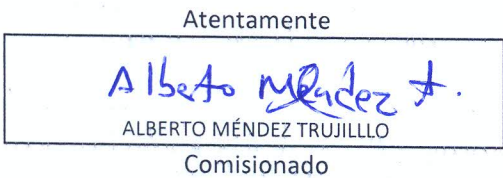 Atentamente
Alberto Méndez t.
ALBERTO MÉNDEZ TRUJILLLO
Comisionado